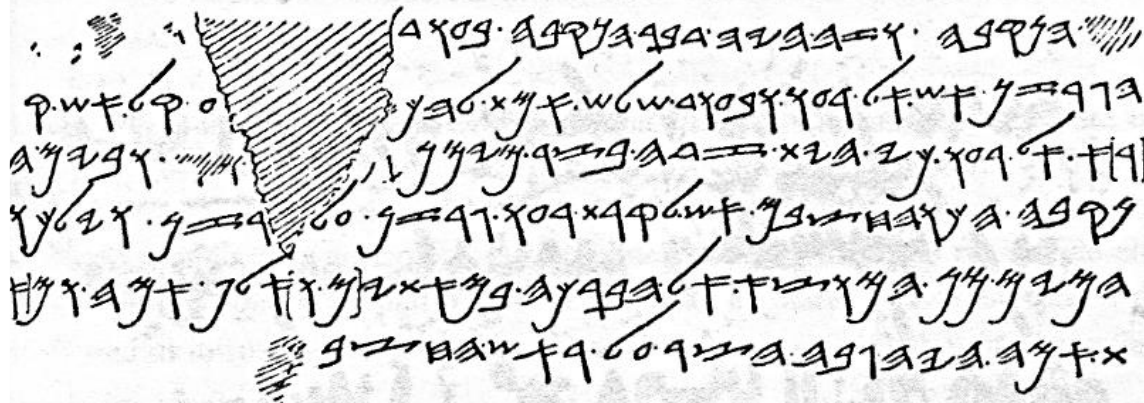 𐤄𐤍𐤒𐤁𐤄.𐤅𐤆𐤄𐤄𐤉𐤄.𐤃𐤁𐤓𐤄𐤍𐤒𐤁𐤄.𐤁𐤏𐤅𐤃
𐤄𐤂𐤓𐤆𐤍.𐤀𐤔.𐤀𐤋.𐤓𐤏𐤅.𐤅𐤁𐤏𐤅𐤃.𐤔𐤋𐤔.𐤀𐤌𐤕.𐤋𐤄𐤍 𐤏.𐤒𐤋.𐤀𐤔.𐤒
[𐤓]𐤀.𐤀𐤋.𐤓𐤏𐤅.𐤊𐤉.𐤄𐤉𐤕.𐤆𐤃𐤄.𐤁𐤑𐤓.𐤌𐤉𐤌𐤍 𐤅𐤁𐤉𐤌.𐤄
𐤍𐤒𐤁𐤄.𐤄𐤊𐤅𐤄𐤇𐤑𐤁𐤌.𐤀𐤔𐤋𐤒𐤓𐤕𐤓𐤏𐤅.𐤂𐤓𐤆𐤍.𐤏𐤋 𐤓𐤆𐤍.𐤅𐤉𐤋𐤊𐤅
𐤄𐤌𐤉𐤌.𐤌𐤍.𐤄𐤌𐤅𐤑𐤀.𐤀𐤋𐤄𐤁𐤓𐤊𐤄.𐤁𐤌𐤀𐤕𐤉[𐤌.𐤅]𐤀𐤋𐤐.𐤀𐤌𐤄.𐤅𐤌[𐤀]
𐤕.𐤀𐤌𐤄.𐤄𐤉𐤄𐤂𐤁𐤄.𐤄𐤑𐤓.𐤏𐤋.𐤓𐤀𐤔𐤄𐤇𐤑𐤁